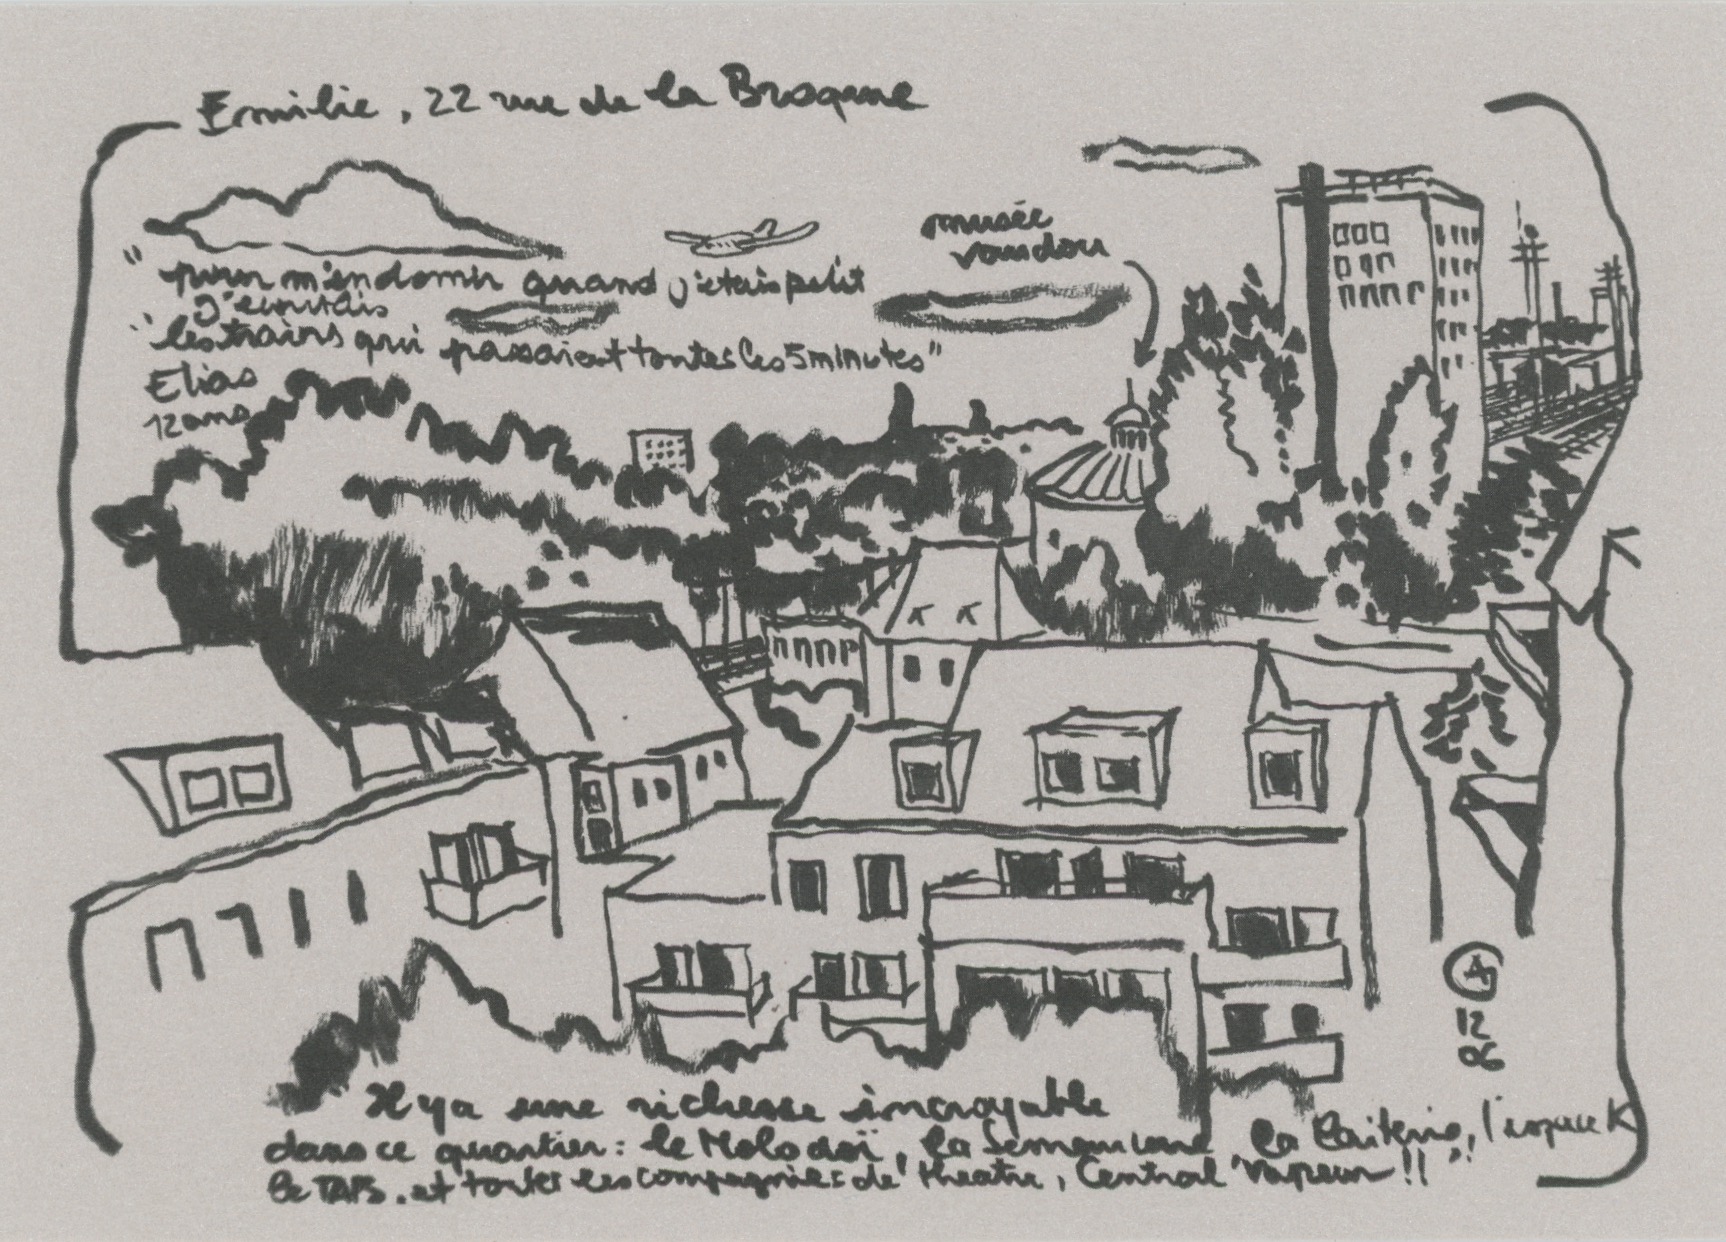 Emilie, 22 rue de la Broque
musée
vaudou
"pour m'endormir quand j'étais petit
j'écoutais
"les trains qui passaient toutes les 5 minutes"
Elias
12 ans
12
06
Il y a une richesse incroyable
dans ce quartier: le Molodoï, la Semencerie, la Laiterie, l'espace K
le TAPS. et toutes les compagnies de théatre, Central Vapeur!!